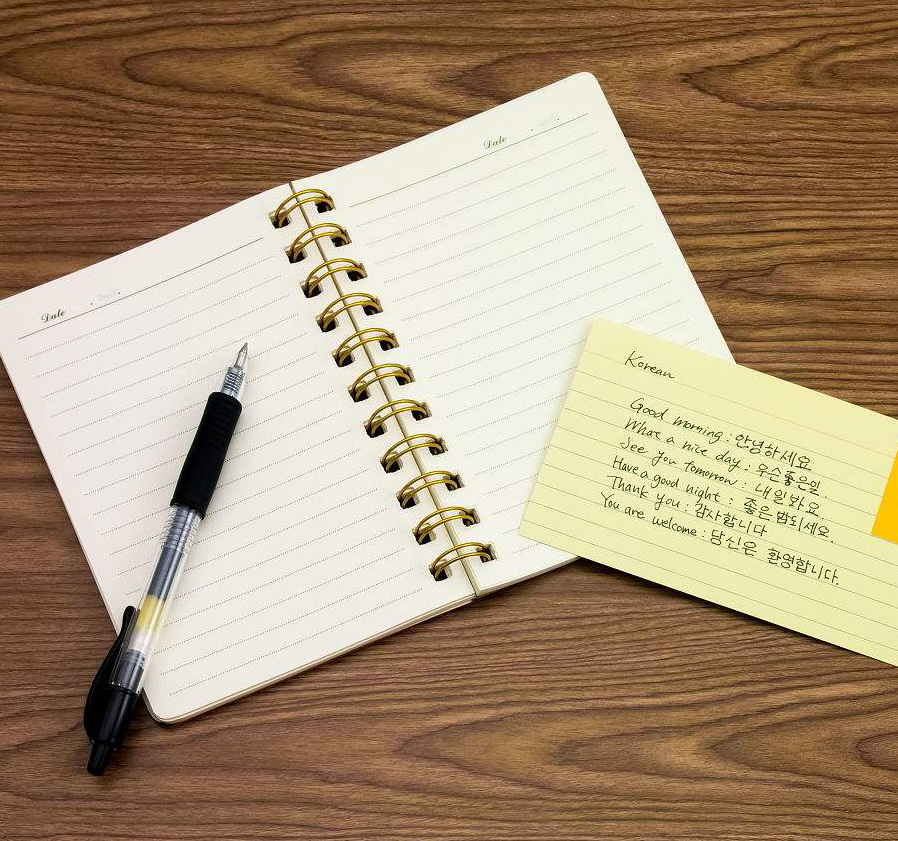 Date
Date
Korean
Good morning : 안녕하세요
What a nice day : 우슨좋은일.
See you tomorrow : 내일봐요
Have a good night : 좋은밤되세요.
Thank you : 감사합니다
You are welcome : 당신은 환영합니다.